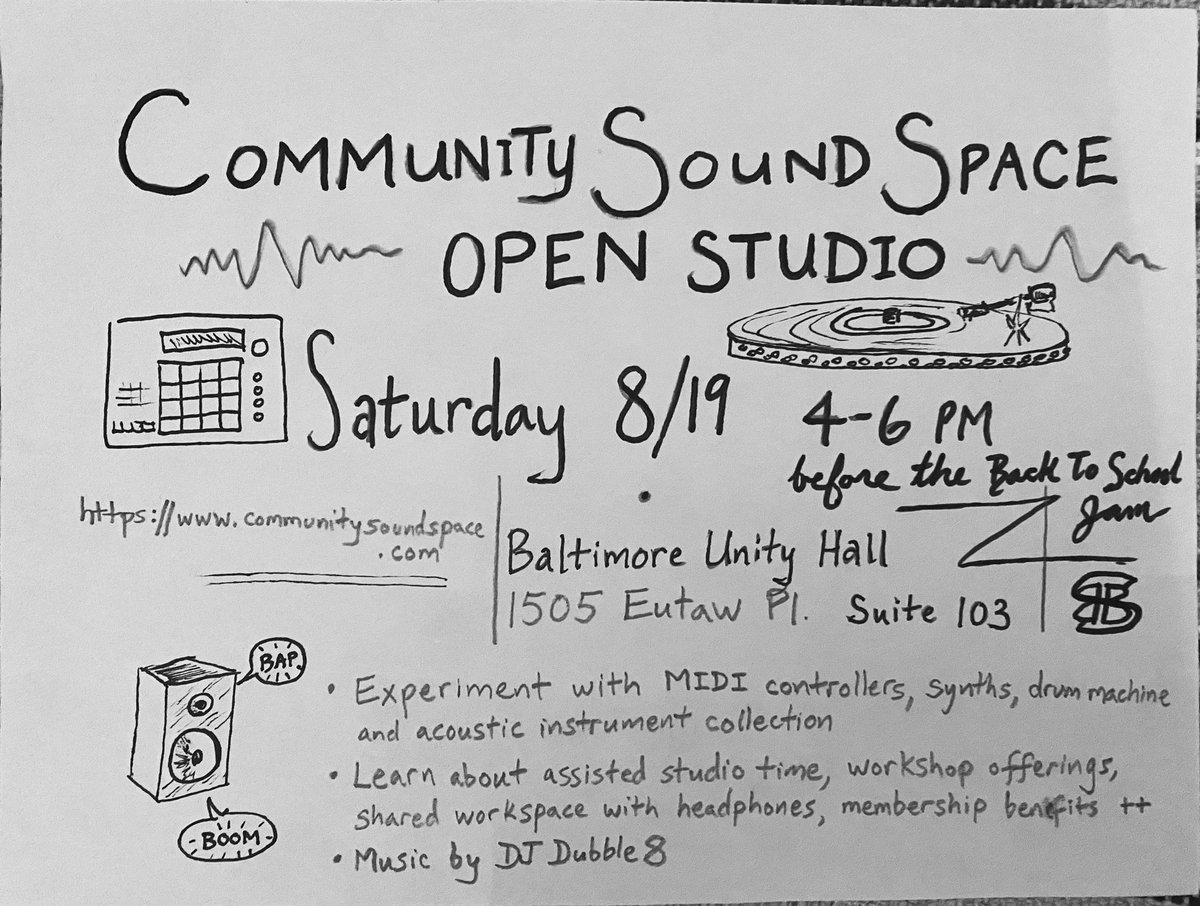 COMMUNITY SOUND SPACE
OPEN STUDIO
Saturday 8/19 4-6 PM
before the Back To School
Jam
https://www.communitysoundspace
.com
Baltimore Unity Hall
1505 Eutaw Pl. Suite 103
BAP
• Experiment with MIDI controllers, synths, drum machine
and acoustic instrument collection
• Learn about assisted studio time, workshop offerings,
shared workspace with headphones, membership benefits ++
BOOM
• Music by DJ Dubble8